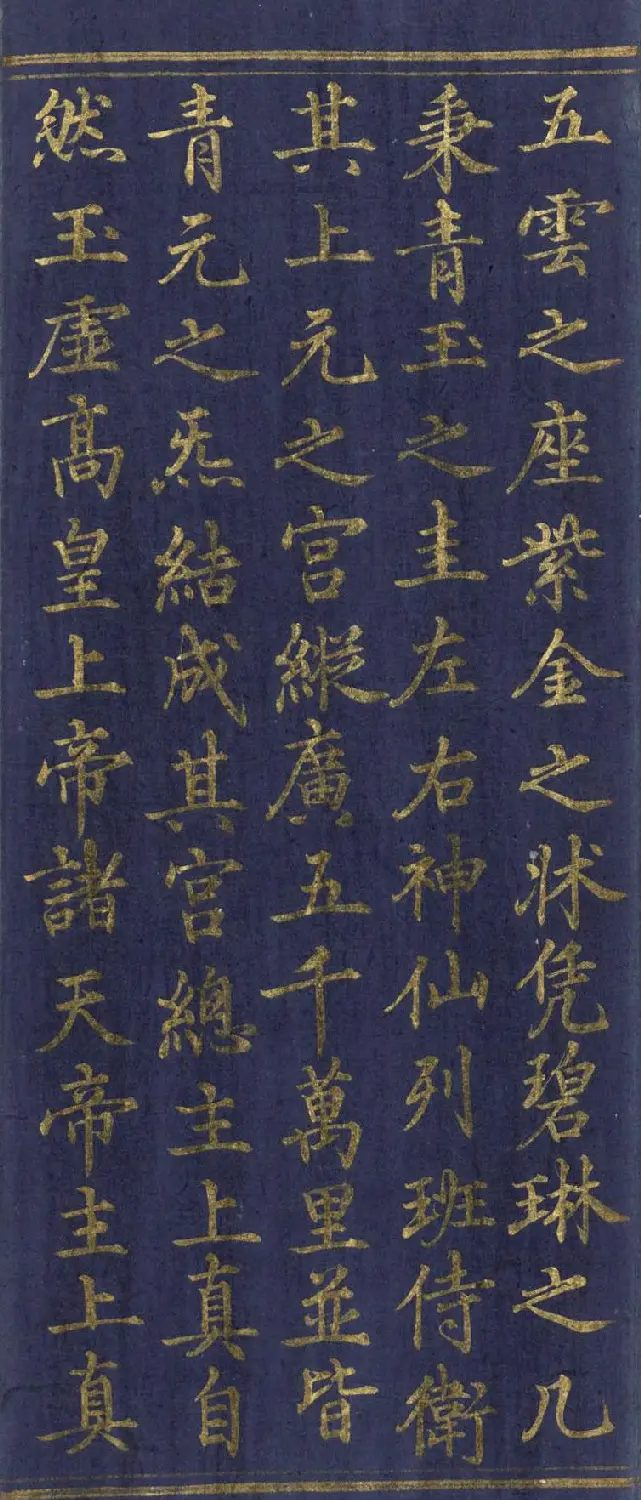 五雲之座紫金之牀凭碧琳之几
秉青玉之圭左右神仙列班侍衛
其上元之宫縱廣五千萬里並皆
青元之炁結成其宫總主上真自
然玉虛髙皇上帝諸天帝主上真